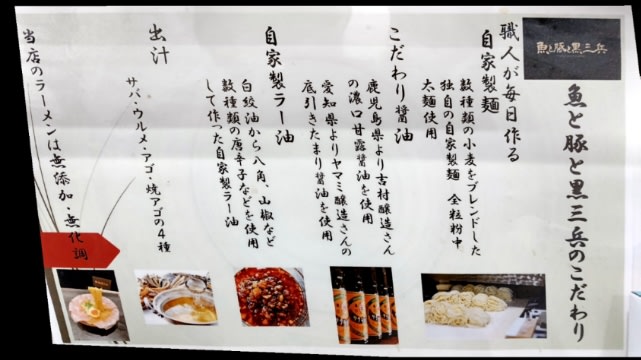 魚と豚と黒三兵
魚と豚と黒三兵のこだわり
職人が毎日作る
自家製麺
数種類の小麦をブレンドした
独自の自家製麺 全粒粉中
太麺使用
こだわり醤油
鹿児島県より吉村醸造さん
の濃口甘露醤油を使用
愛知県よりヤマミ醸造さんの
底引きたまり醤油を使用
自家製ラー油
白絞油から八角、山椒など
数種類の唐辛子などを使用
して作った自家製ラー油
出汁
サバ・ウルメ・アゴ・焼アゴの4種
当店のラーメンは無添加・無化調